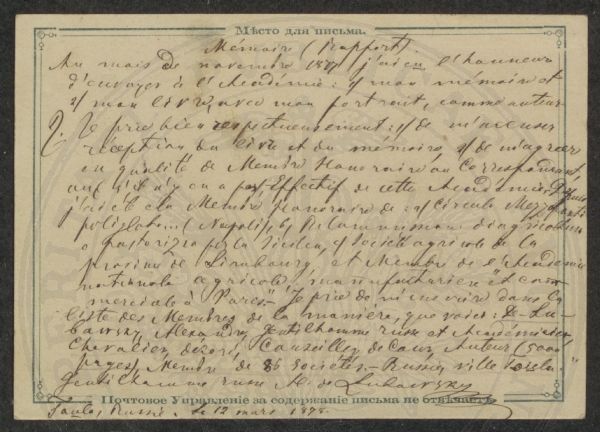 Мѣсто для письма.
Mémoire (Rapport).
Au mois de novembre 1877 j'ai eu l'honneur
d'envoyer à l'Académie: 1/ mon mémoire et
2/ mon livre avec mon portrait, comme auteur
Je prie bien respectueusement: 1/ de m'accuser
réception du livre et du mémoire, 2/ de m'agréer
en qualité de Membre Honoraire ou Correspondant,
s'il n'y en a pas Effectif de cette Académie.
j'ai été élu Membre Honoraire de: 1/ Circulo
(Napoli),
la Sicilia, Société agricole de la
province de Limbourg, et Membre de l'Académie
nationale agricole, manufacturière et com
merciale à Paris. Je prie de m'inscrire dans la
liste des Membres de la manière, que voici: De-Lu-
bawsky Alexandre, Gentilhomme russe et Académicien,
Chevalier décoré, Conseiller de Cour, Auteur (5000
pages), Membre de 36 Sociétés. - Russie, ville
Gentilhomme russe A. de Lubawsky
Почтовое Управленіе за содержаніе письма не отвѣчаетъ.
Russie. le 12 mars 1878.